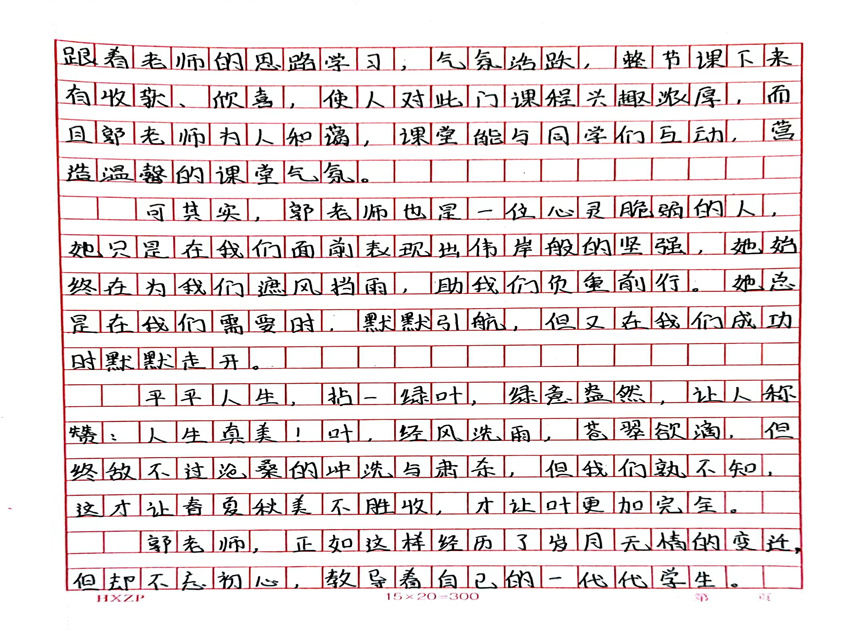 跟着老师的思路学习，气氛活跃，整节课下来
有收获、欣喜，使人对此门课程兴趣浓厚，而
且郭老师为人和蔼，课堂能与同学们互动，营
造温馨的课堂气氛。
可其实，郭老师也是一位心灵脆弱的人，
她只是在我们面前表现出伟岸般的坚强，她始
终在为我们遮风挡雨，助我们负重前行。她总
是在我们需要时，默默引航，但又在我们成功
时默默走开。
平平人生，拈一绿叶，绿意盎然，让人称
赞：人生真美！叶，经风洗雨，苍翠欲滴，但
终敌不过沧桑的冲洗与肃杀，但我们孰不知，
这才让春夏秋美不胜收，才让叶更加完全。
郭老师，正如这样经历了岁月无情的变迁，
但却不忘初心，教导着自己的一代代学生。
HXZP 15×20=300 第 页